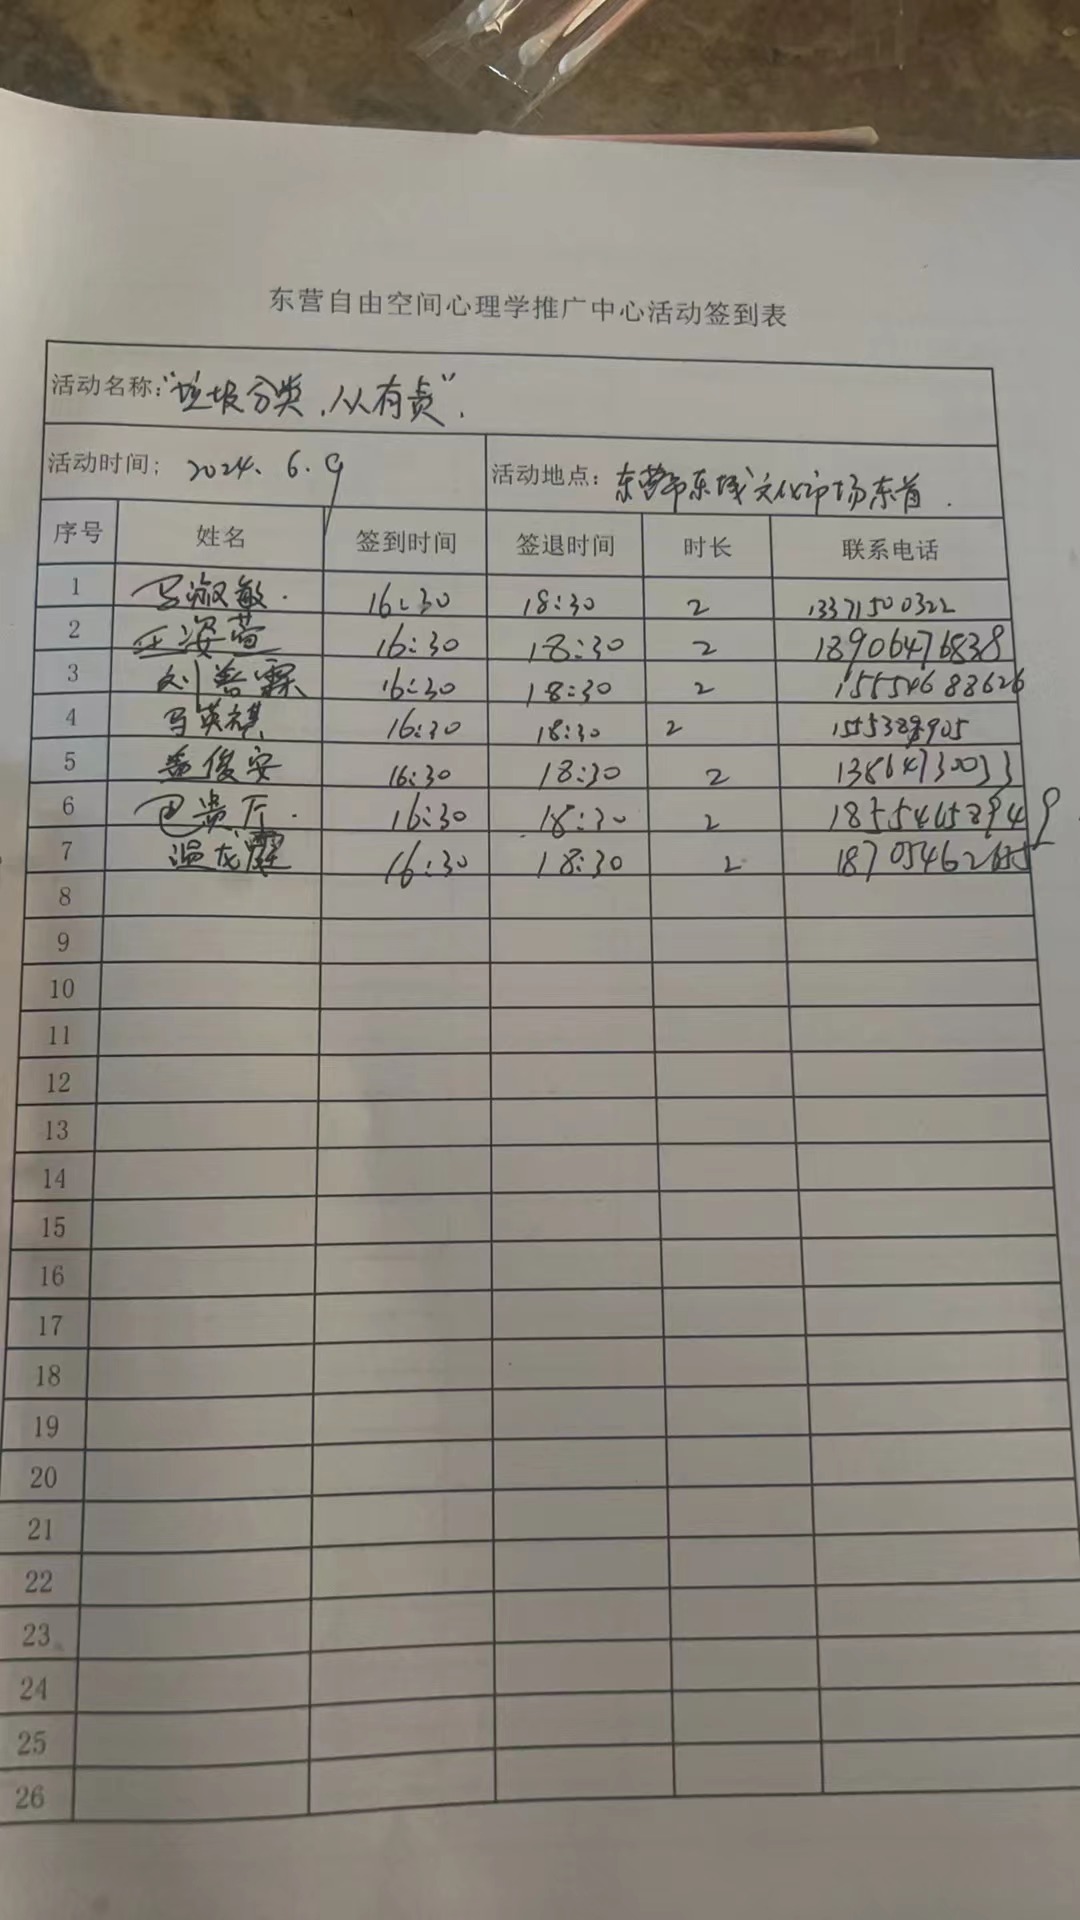 东营自由空间心理学推广中心活动签到表
活动名称:“垃圾分类,人人有责”.
活动时间: 2024.6.9 活动地点: 东营市东城文化市场东首.
序号 姓名 签到时间 签退时间 时长 联系电话
1 马淑敏. 16:30 18:30 2 13371500322
2 王姿萱 16:30 18:30 2 18906476838
3 刘 霖 16:30 18:30 2 15554688626
4 马英祺 16:30 18:30 2
5 俊安 16:30 18:30 2 13864730033
6 巴贵 . 16:30 18:30 2
7 温 16:30 18:30 2
8
9
10
11
12
13
14
15
16
17
18
19
20
21
22
23
24
25
26